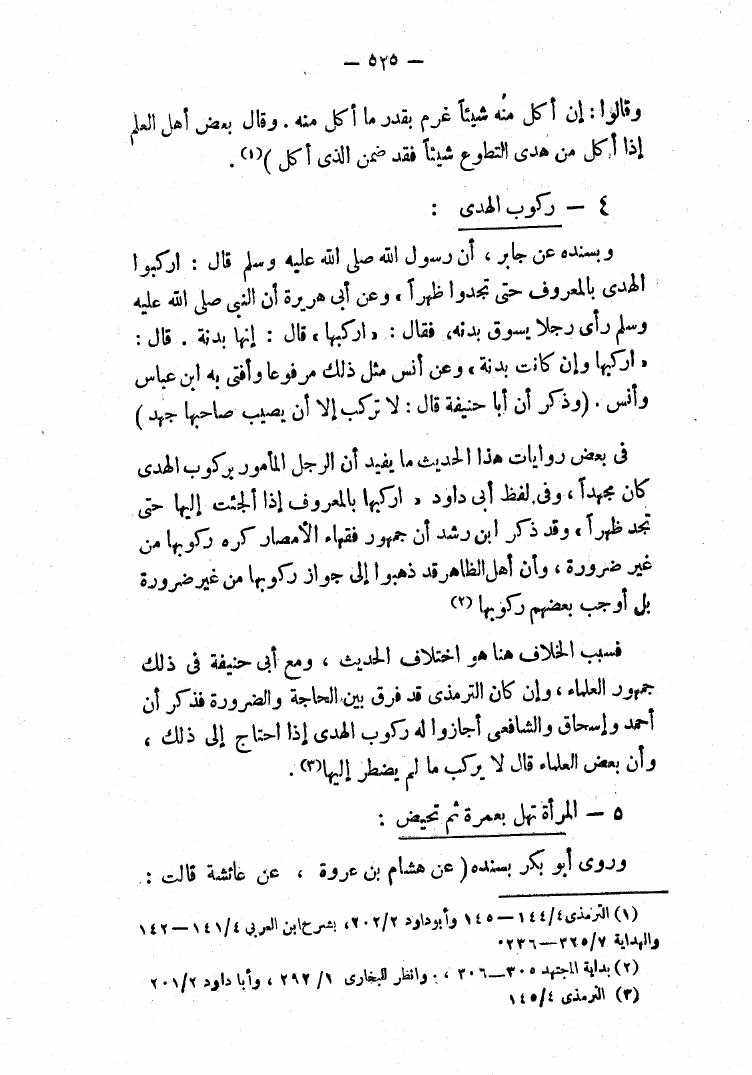 — ٥٢٥ —
وقالوا : إن أكل منه شيئاً غرم بقدر ما أكل منه . وقال بعض أهل العلم
إذا أكل من هدى التطوع شيئاً فقد ضمن الذى أكل )(١) .
٤ — ركوب الهدى :
وبسنده عن جابر ، أن رسول الله صلى الله عليه وسلم قال : اركبوا
الهدى بالمعروف حتى تجدوا ظهراً ، وعن أبى هريرة أن النبى صلى الله عليه
وسلم رأى رجلا يسوق بدنه، فقال : « اركبها ، قال : إنها بدنة . قال :
« اركبها وإن كانت بدنة ، وعن أنس مثل ذلك مرفوعا وأفتى به ابن عباس
وأنس . (وذكر أن أبا حنيفة قال : لا تركب إلا أن يصيب صاحبها جهد )
فى بعض روايات هذا الحديث ما يفيد أن الرجل المأمور بركوب الهدى
كان مجهداً ، وفى لفظ أبى داود « اركبها بالمعروف إذا ألجئت إليها حتى
تجد ظهراً ، وقد ذكر ابن رشد أن جمهور فقهاء الأمصار كره ركوبها من
غير ضرورة ، وأن أهل الظاهر قد ذهبوا إلى جواز ركوبها من غير ضرورة
بل أوجب بعضهم ركوبها (٢)
فسبب الخلاف هنا هو اختلاف الحديث ، ومع أبى حنيفة فى ذلك
جمهور العلماء ، وإن كان الترمذى قد فرق بين الحاجة والضرورة فذكر أن
أحمد وإسحاق والشافعى أجازوا له ركوب الهدى إذا احتاج إلى ذلك ،
وأن بعض العلماء قال لا يركب ما لم يضطر إليها(٣) .
٥ — المرأة تهل بعمرة ثم تحيض :
وروى أبو بكر بسنده ( عن هشام بن عروة ، عن عائشة قالت :
(١) الترمذى ١٤٤/٤ — ١٤٥ وأبوداود ٢٠٢/٢، بشرح ابن العربي ١٤١/٤ — ١٤٢
والهداية ٣٢٥/٧ —٢٣٦٠
(٢) بداية المجتهد ٣٠٥ — ٣٠٦ ، . وانظر للبخارى ١/ ٢٩٢ ، وأبا داود ٢٠١/٢
(٣) الترمذى ١٤٥/٤